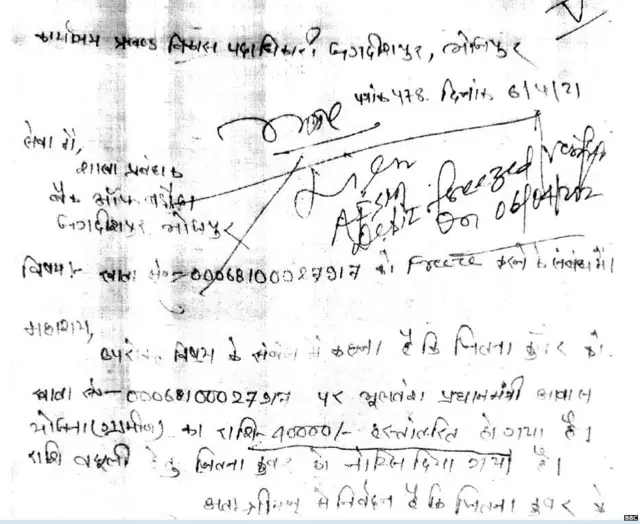 कार्यालय प्रखण्ड विकास पदाधिकारी जगदीशपुर, भोजपुर
पत्रांक 478. दिनांक 6/4/21
सेवा में,
शाखा प्रबंधक
बैंक ऑफ बड़ौदा
जगदीशपुर, भोजपुर
Debit freezed
On 06/04/202
विषय:- खाता सं०- को Freeze करने के संबंध में।
महाशय,
उपरोक्त विषय के संबंध में कहना है कि जितना कुंवर को
खाता सं०- पर भूलवश प्रधानमंत्री आवास
योजना (ग्रामीण) का राशि- 90000/- हस्तांतरित हो गया है।
राशि वसूली हेतु जितना कुंवर को नोटिस दिया गया है।
अतः श्रीमान् से निवेदन है कि जितना कुंवर के
BBC